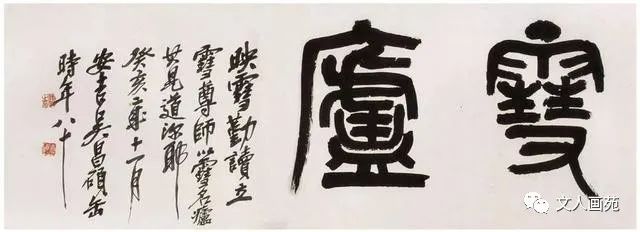 雪廬
映雪勤讀立
雪尊師以雪名廬
其見道深耶
癸亥歲十一月
安吉吳昌碩缶
時年八十
文人画苑